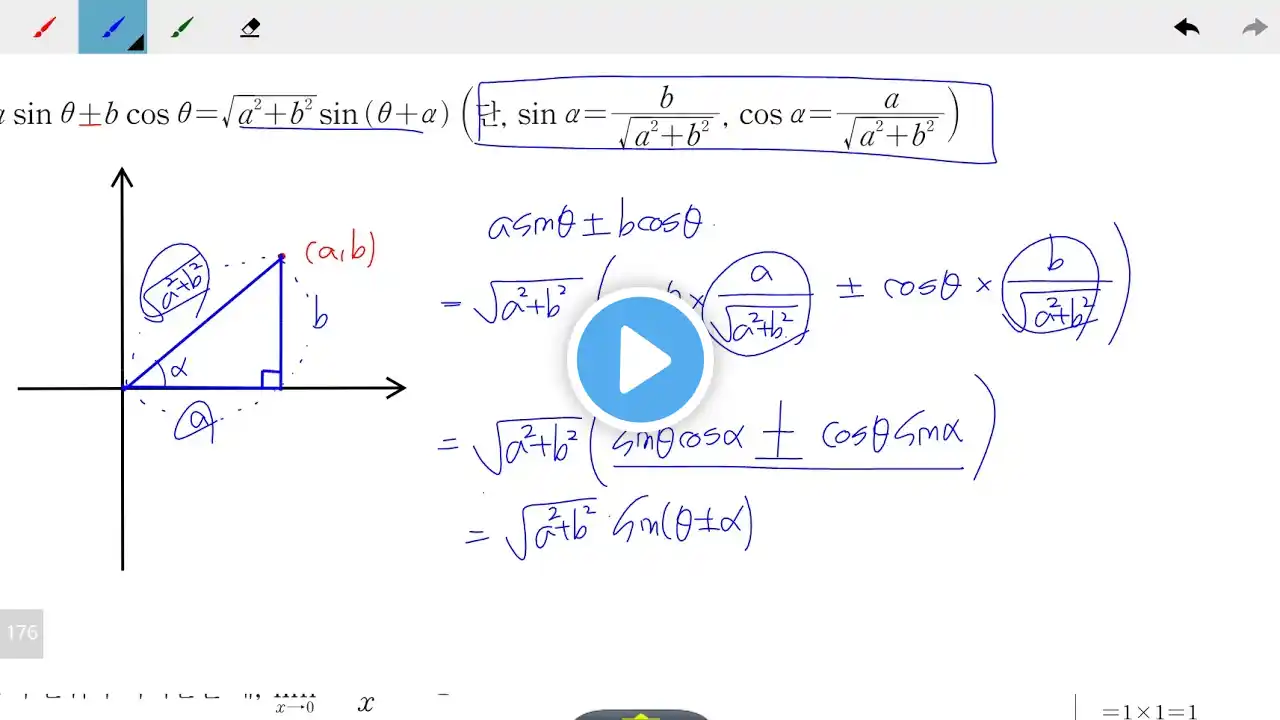 a sin θ±b cos θ=√(a²+b²) sin (θ+α) (단, sin α=b/√(a²+b²), cos α=a/√(a²+b²))
(a,b)
√(a²+b²)
b
α
a
asinθ ± bcosθ
= √(a²+b²) ( × a/√(a²+b²) ± cosθ × b/√(a²+b²) )
= √(a²+b²) (sinθcosα ± cosθsinα)
= √(a²+b²) sin(θ±α)
176
x→0 x
=1×1=1